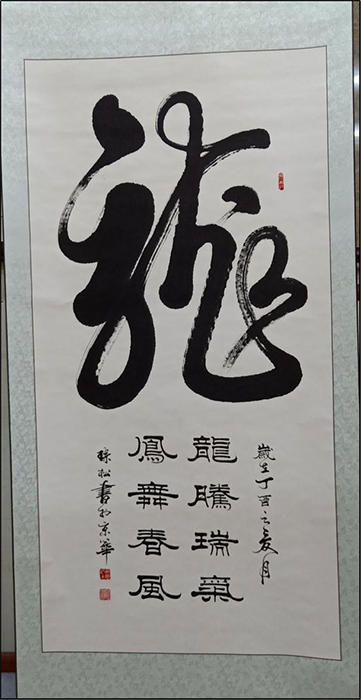 龍
歲在丁酉之夏月
龍騰瑞氣
鳳舞春風
松書於京華